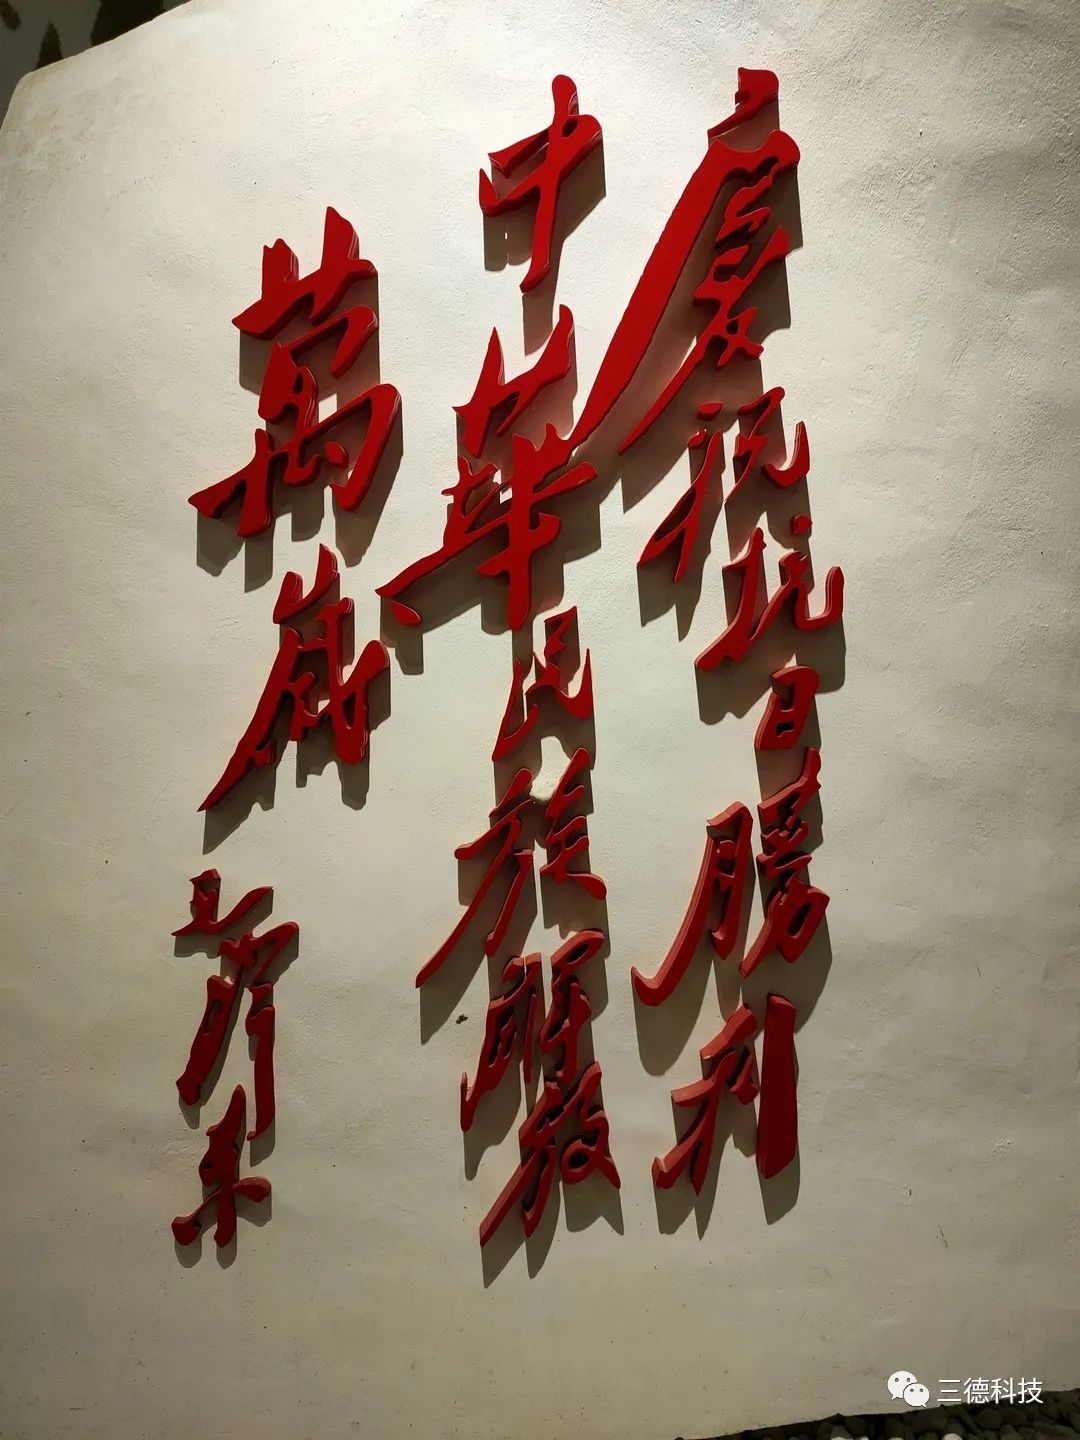 慶祝抗日勝利
中華民族解放
萬歲
毛澤東
三德科技